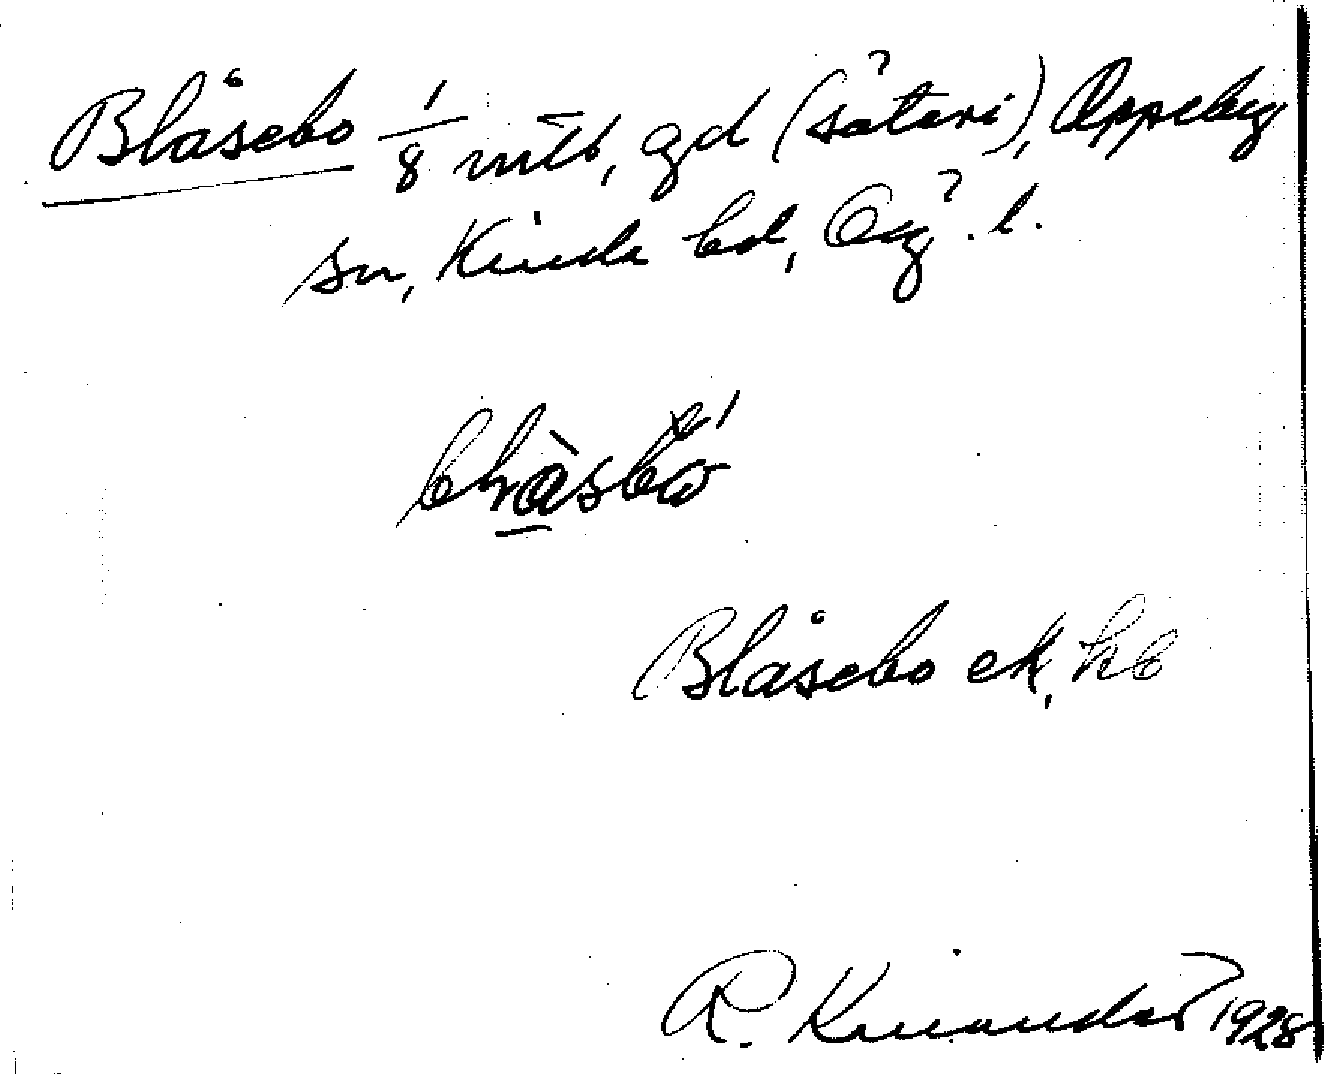 Blåsebo 1/8 mtl, gd (säteri), Oppeby
sn, Kinda hd, Ög. l.
Blåsebo ek, hb
R. Kinander 1928